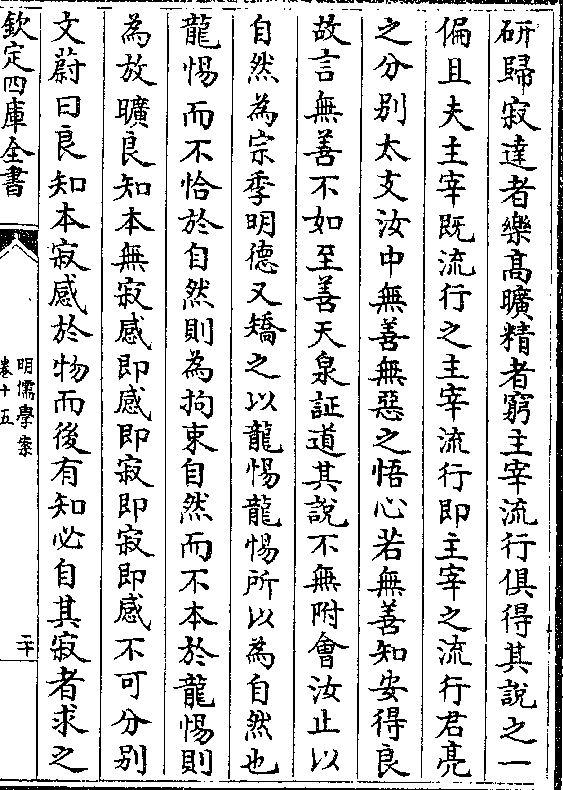 研歸寂達者樂高曠精者窮主宰流行俱得其說之一
偏且夫主宰既流行之主宰流行即主宰之流行君亮
之分别太支汝中無善無惡之悟心若無善知安得良
故言無善不如至善天泉証道其說不無附會汝止以
自然為宗季明德又矯之以龍惕龍惕所以為自然也
龍惕而不恰於自然則為拘束自然而不本於龍惕則
為放曠良知本無寂感即感即寂即寂即感不可分别
文蔚曰良知本寂感於物而後有知必自其寂者求之
欽定四庫全書
明儒學案
卷十五
二十